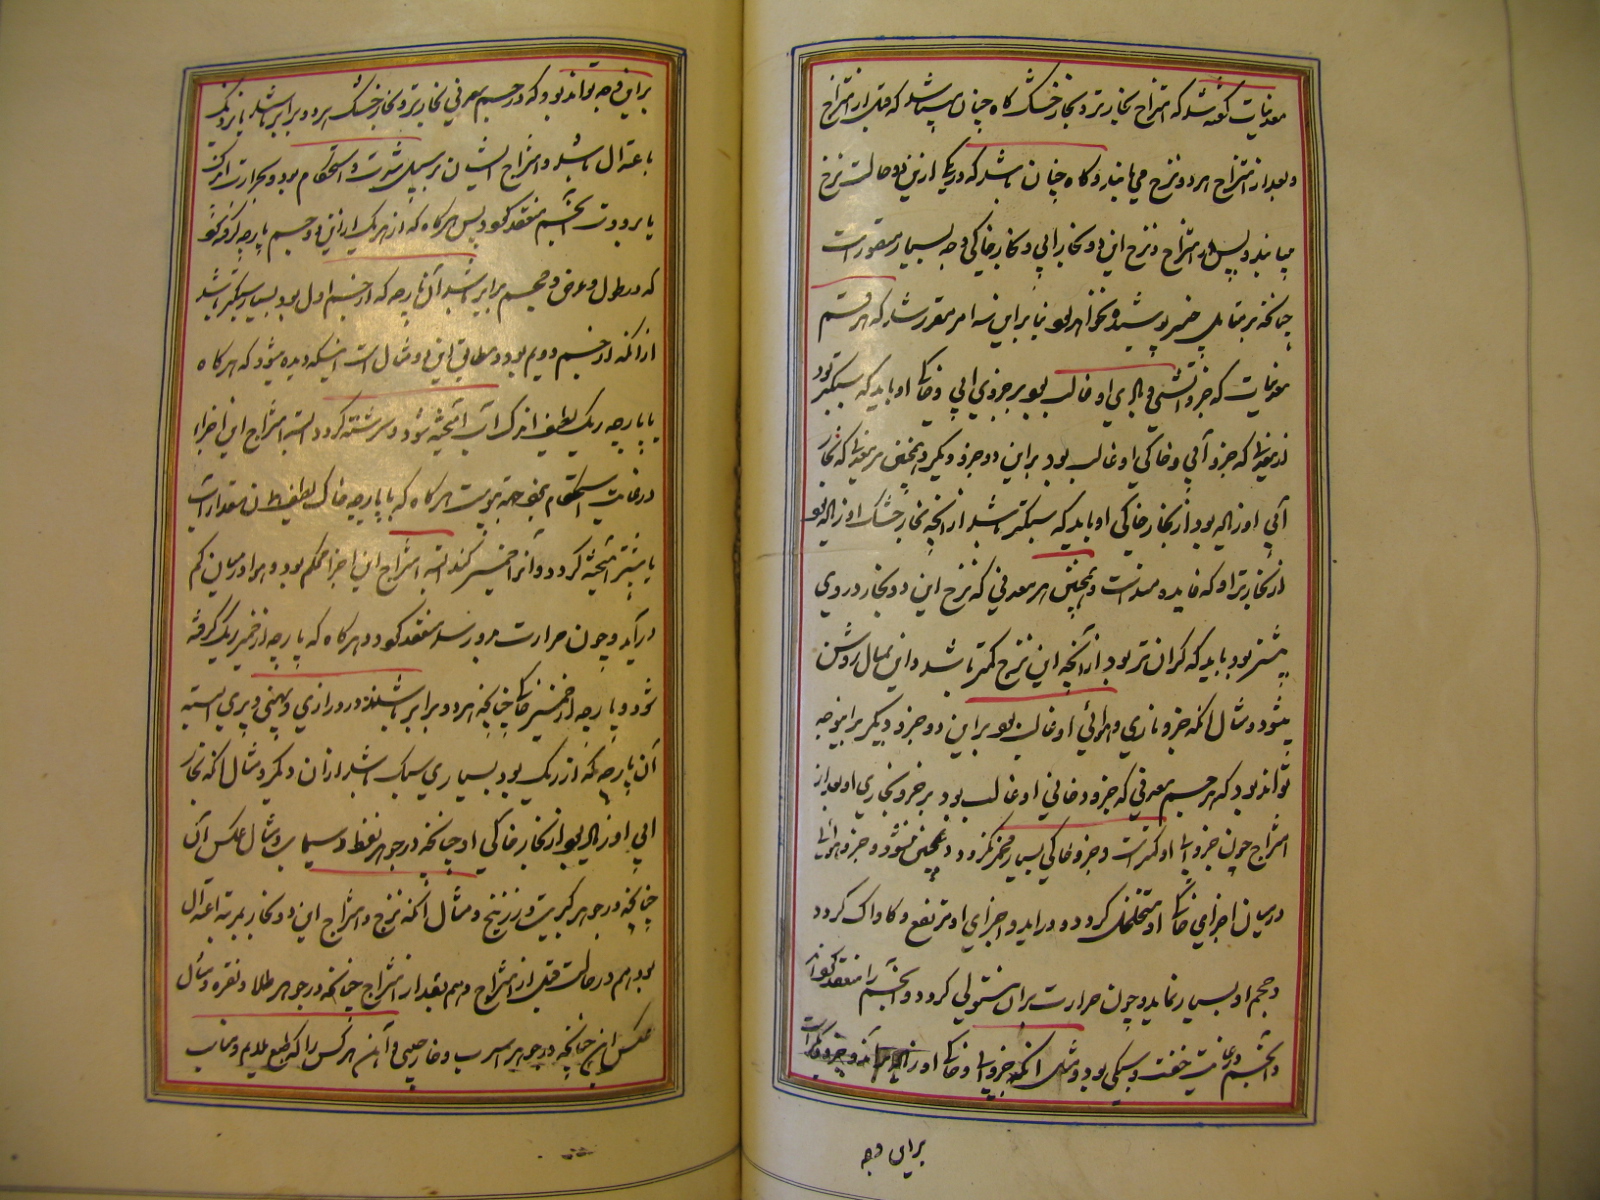 معدنیات گفته شد که امتزاج بخار تر و بخار خشک گاه چنان میباشد که قبل از امتزاج
و بعد از امتزاج هر دو نزج می مانند و گاه چنان باشد که در یکی ازین دو حالت نزج
میمانند و پس در امتزاج و نزج این دو بخار آبی و بخار خاکی وجه بسیار متصور است
چنانچه بر متامل خبیر پوشیده نخواهد بود بنابراین سه امر مقرر شد که هر قسم
معدنیات که جزو آتشی و بادی او غالب بود بر جزوی آبی و خاکی او باید که سبکتر بود
که جزو آبی و خاکی او غالب بود برین دو جزو دیگر و همچنین هر معدنی که بخار
آبی او زیاده بود از بخار خاکی او باید که سبکتر باشد از آنچه بخار خشک او زیاده بود
از بخار تر او که فایده مند است و همچنین هر معدنی که نزج این دو بخار در وی
بیشتر بود باید که گران تر بود از آنچه این نزج کمتر باشد و این بمثال روشن
میشود و مثال آنکه جزو ناری و هوائی او غالب بود برین دو جزو دیگر برابنوجه
تواند بود که هر جسم معدنی که جزو دخانی او غالب بود بر جزو بخاری او بعد از
امتزاج چون جزو آبی او کمتر است و جزو خاکی بسیار مخمر نگردد و عجین نشود و جزو هوائی
در میان اجزای خاکی او متخلخل گردد و در آید و اجزای او مرتفع و کاواک گردد
و حجم او بسیار نماید و چون حرارت بران مستولی گردد و آن جسم را منعقد گرداند
و آن جسم در غایت خفت و سبکی بود و مثال آنکه جزو آبی و خاکی او زیاده
برای وجه
براین وجه تواند بود که در جسم معدنی بخار تر و بخار خشک هر دو برابر باشد یا نزدیک
باعتدال باشد و امتزاج ایشان بر سبیل شدت و استحکام بود و بحرارت اندک
یا برودت آن جسم منعقد گردد پس هرگاه که از هر یک ازین دو جسم پارچه گرفته شود
که در طول و عرض و حجم برابر باشد آن پارچه که از جسم اول بود بسیار سبکتر باشد
از آنکه از جسم دویم بود و مطابق این دو مثال است اینکه دیده میشود که هرگاه
با پارچه ریگ لطیف اندک آب آمیخته شود و سرشته گردد البته امتزاج این اجزا
در غایت استحکام بود هرگاه که با پارچه خاک لطیف همان مقدار آب
یا بیشتر آمیخته گردد و آنرا خمیر کنند البته امتزاج این اجزا محکم بود و هوا در میان کم
درآید و چون حرارت برو رسد منعقد گردد و هرگاه که پارچه از خمیر ریگ گرفته
شود و پارچه از خمیر خاک چنانچه هر دو برابر باشند در درازی و پهنی و پری البته
آن پارچه که از ریگ بود بسیاری سبک باشد از آن دیگر و مثال آنکه بخار
آبی او زیاده بود از بخار خاکی او چنانچه در جوهر نفط و سیماب و مثال عکس آن
چنانچه در جوهر کبریت و زرنیخ و مثال آنکه نزج و امتزاج این دو بخار بمرتبه اعتدال
بود هم در حالت قبل از امتزاج و هم بعد از امتزاج چنانچه در جوهر طلا و نقره و مثال
عکس این چنانچه در جوهر اسرب و خارصینی و آهن هر کس را که طبع ملایم و مناسب